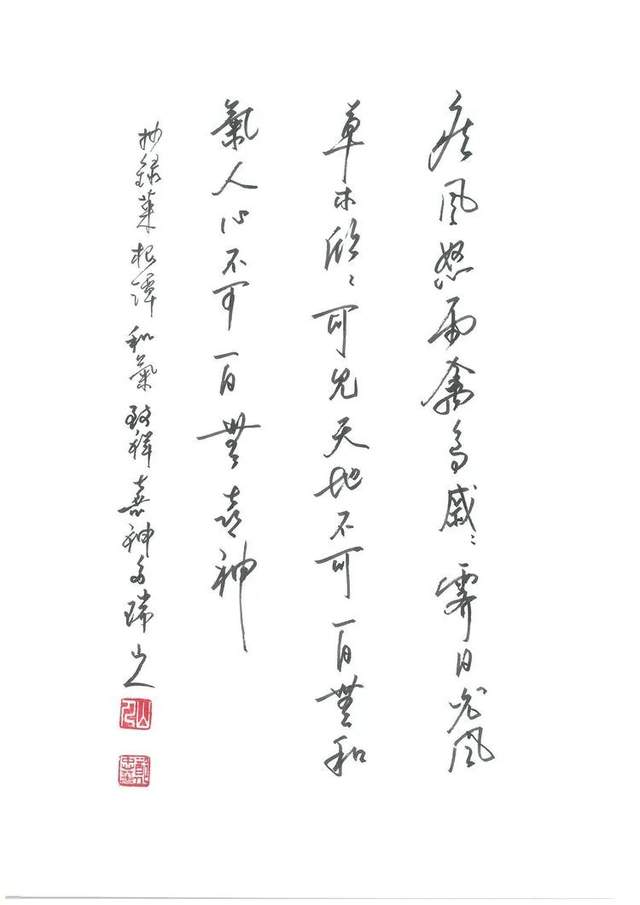 疾風怒雨禽鳥戚〻霽日光風
草木欣〻可見天地不可一日無和
氣人心不可一日無喜神
抄錄菜根譚和氣致祥喜神多瑞山人
山人